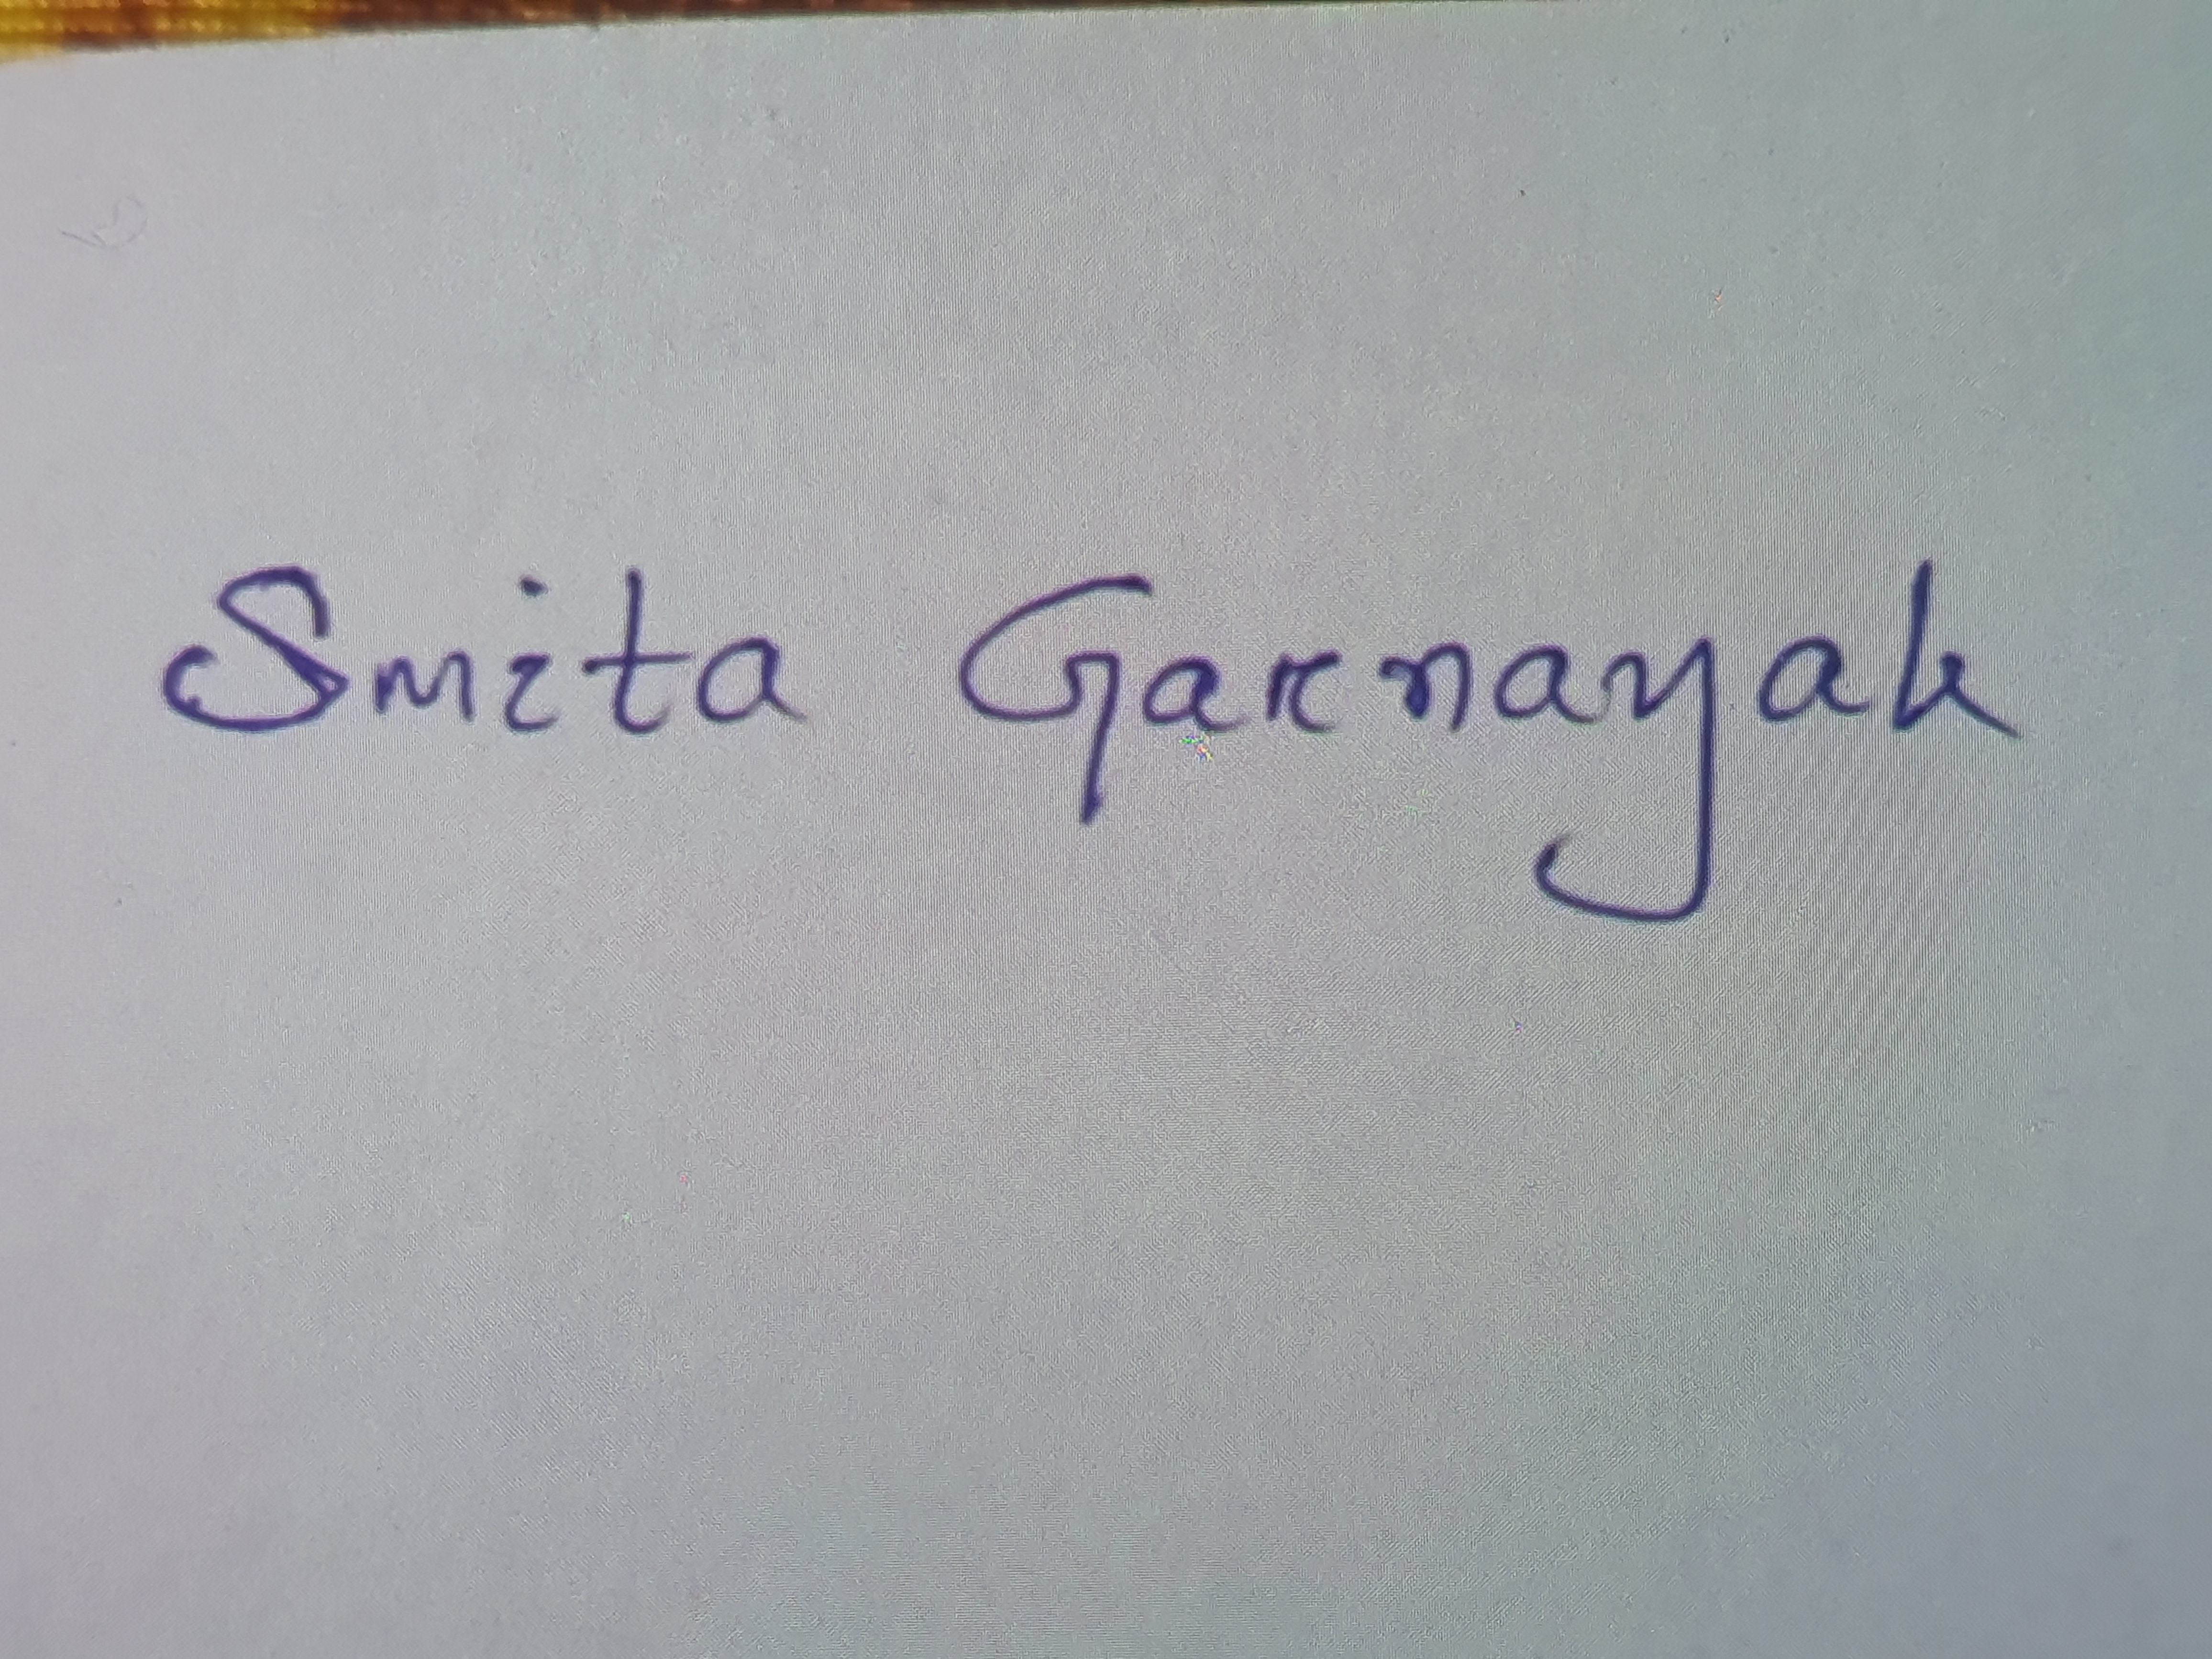 Smita Garnayak